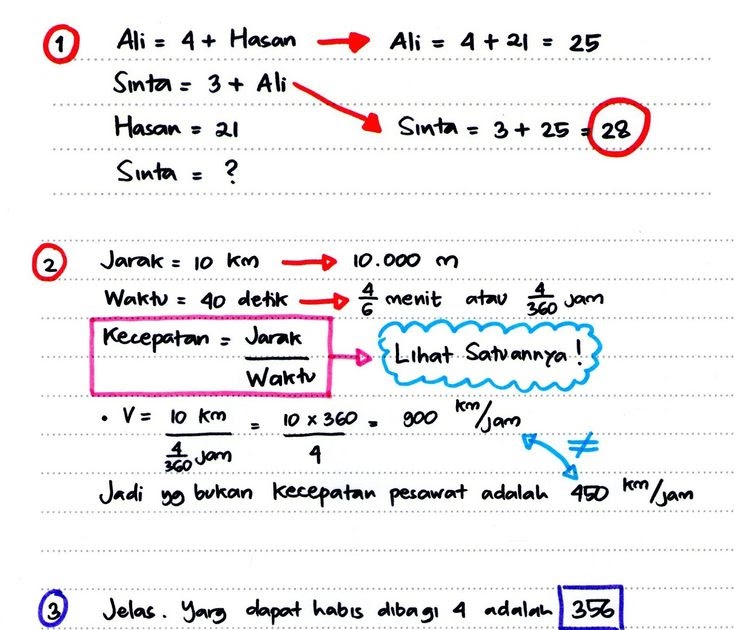 1 Ali = 4 + Hasan → Ali = 4 + 21 = 25
Sinta = 3 + Ali
Hasan = 21 Sinta = 3 + 25 = 28
Sinta = ?
2 Jarak = 10 km → 10.000 m
Waktu = 40 detik → 4/6 menit atau 4/360 jam
Kecepatan = Jarak / Waktu → Lihat Satuannya !
• V = 10 km / 4/360 jam = 10 x 360 / 4 = 900 km/jam
≠
Jadi yg bukan kecepatan pesawat adalah 450 km/jam
3 Jelas. Yang dapat habis dibagi 4 adalah 356